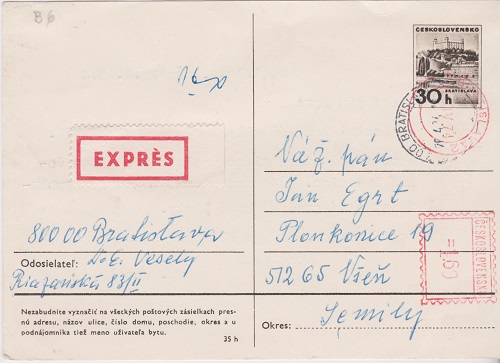 B6
ČESKOSLOVENSKO
BRATISLAVA
30 h
EXPRÈS
Váž. pán
Ján Egrt
Plonkonice 19
512 65 Všeň
Semily
Okres:
ČESKOSLOVENSKO
800 00 Bratislava
Odosielateľ:
Vesely
Riazanská 83/II
Nezabudnite vyznačiť na všetkých poštových zásielkach pres-
nú adresu, názov ulice, číslo domu, poschodie, okres a u
podnájomníka tiež meno užívateľa bytu.
35 h